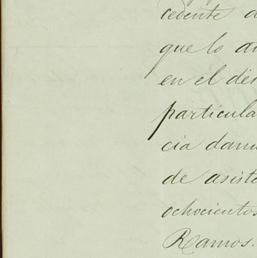 cedente d
que lo an
en el des
particula
cia dam
de asist
ochocientos
Ramos.